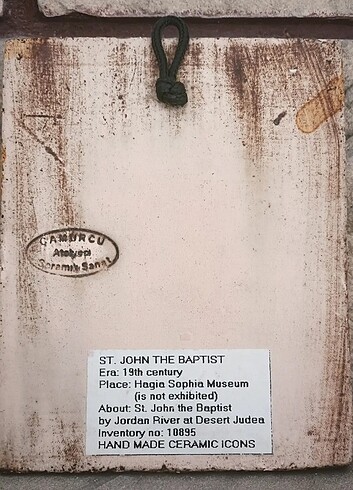 ÇAMURCU
Atolyesi
Seramik Sanat
ST. JOHN THE BAPTIST
Era: 19th century
Place: Hagia Sophia Museum
(is not exhibited)
About: St. John the Baptist
by Jordan River at Desert Judea
Inventory no: 10895
HAND MADE CERAMIC ICONS